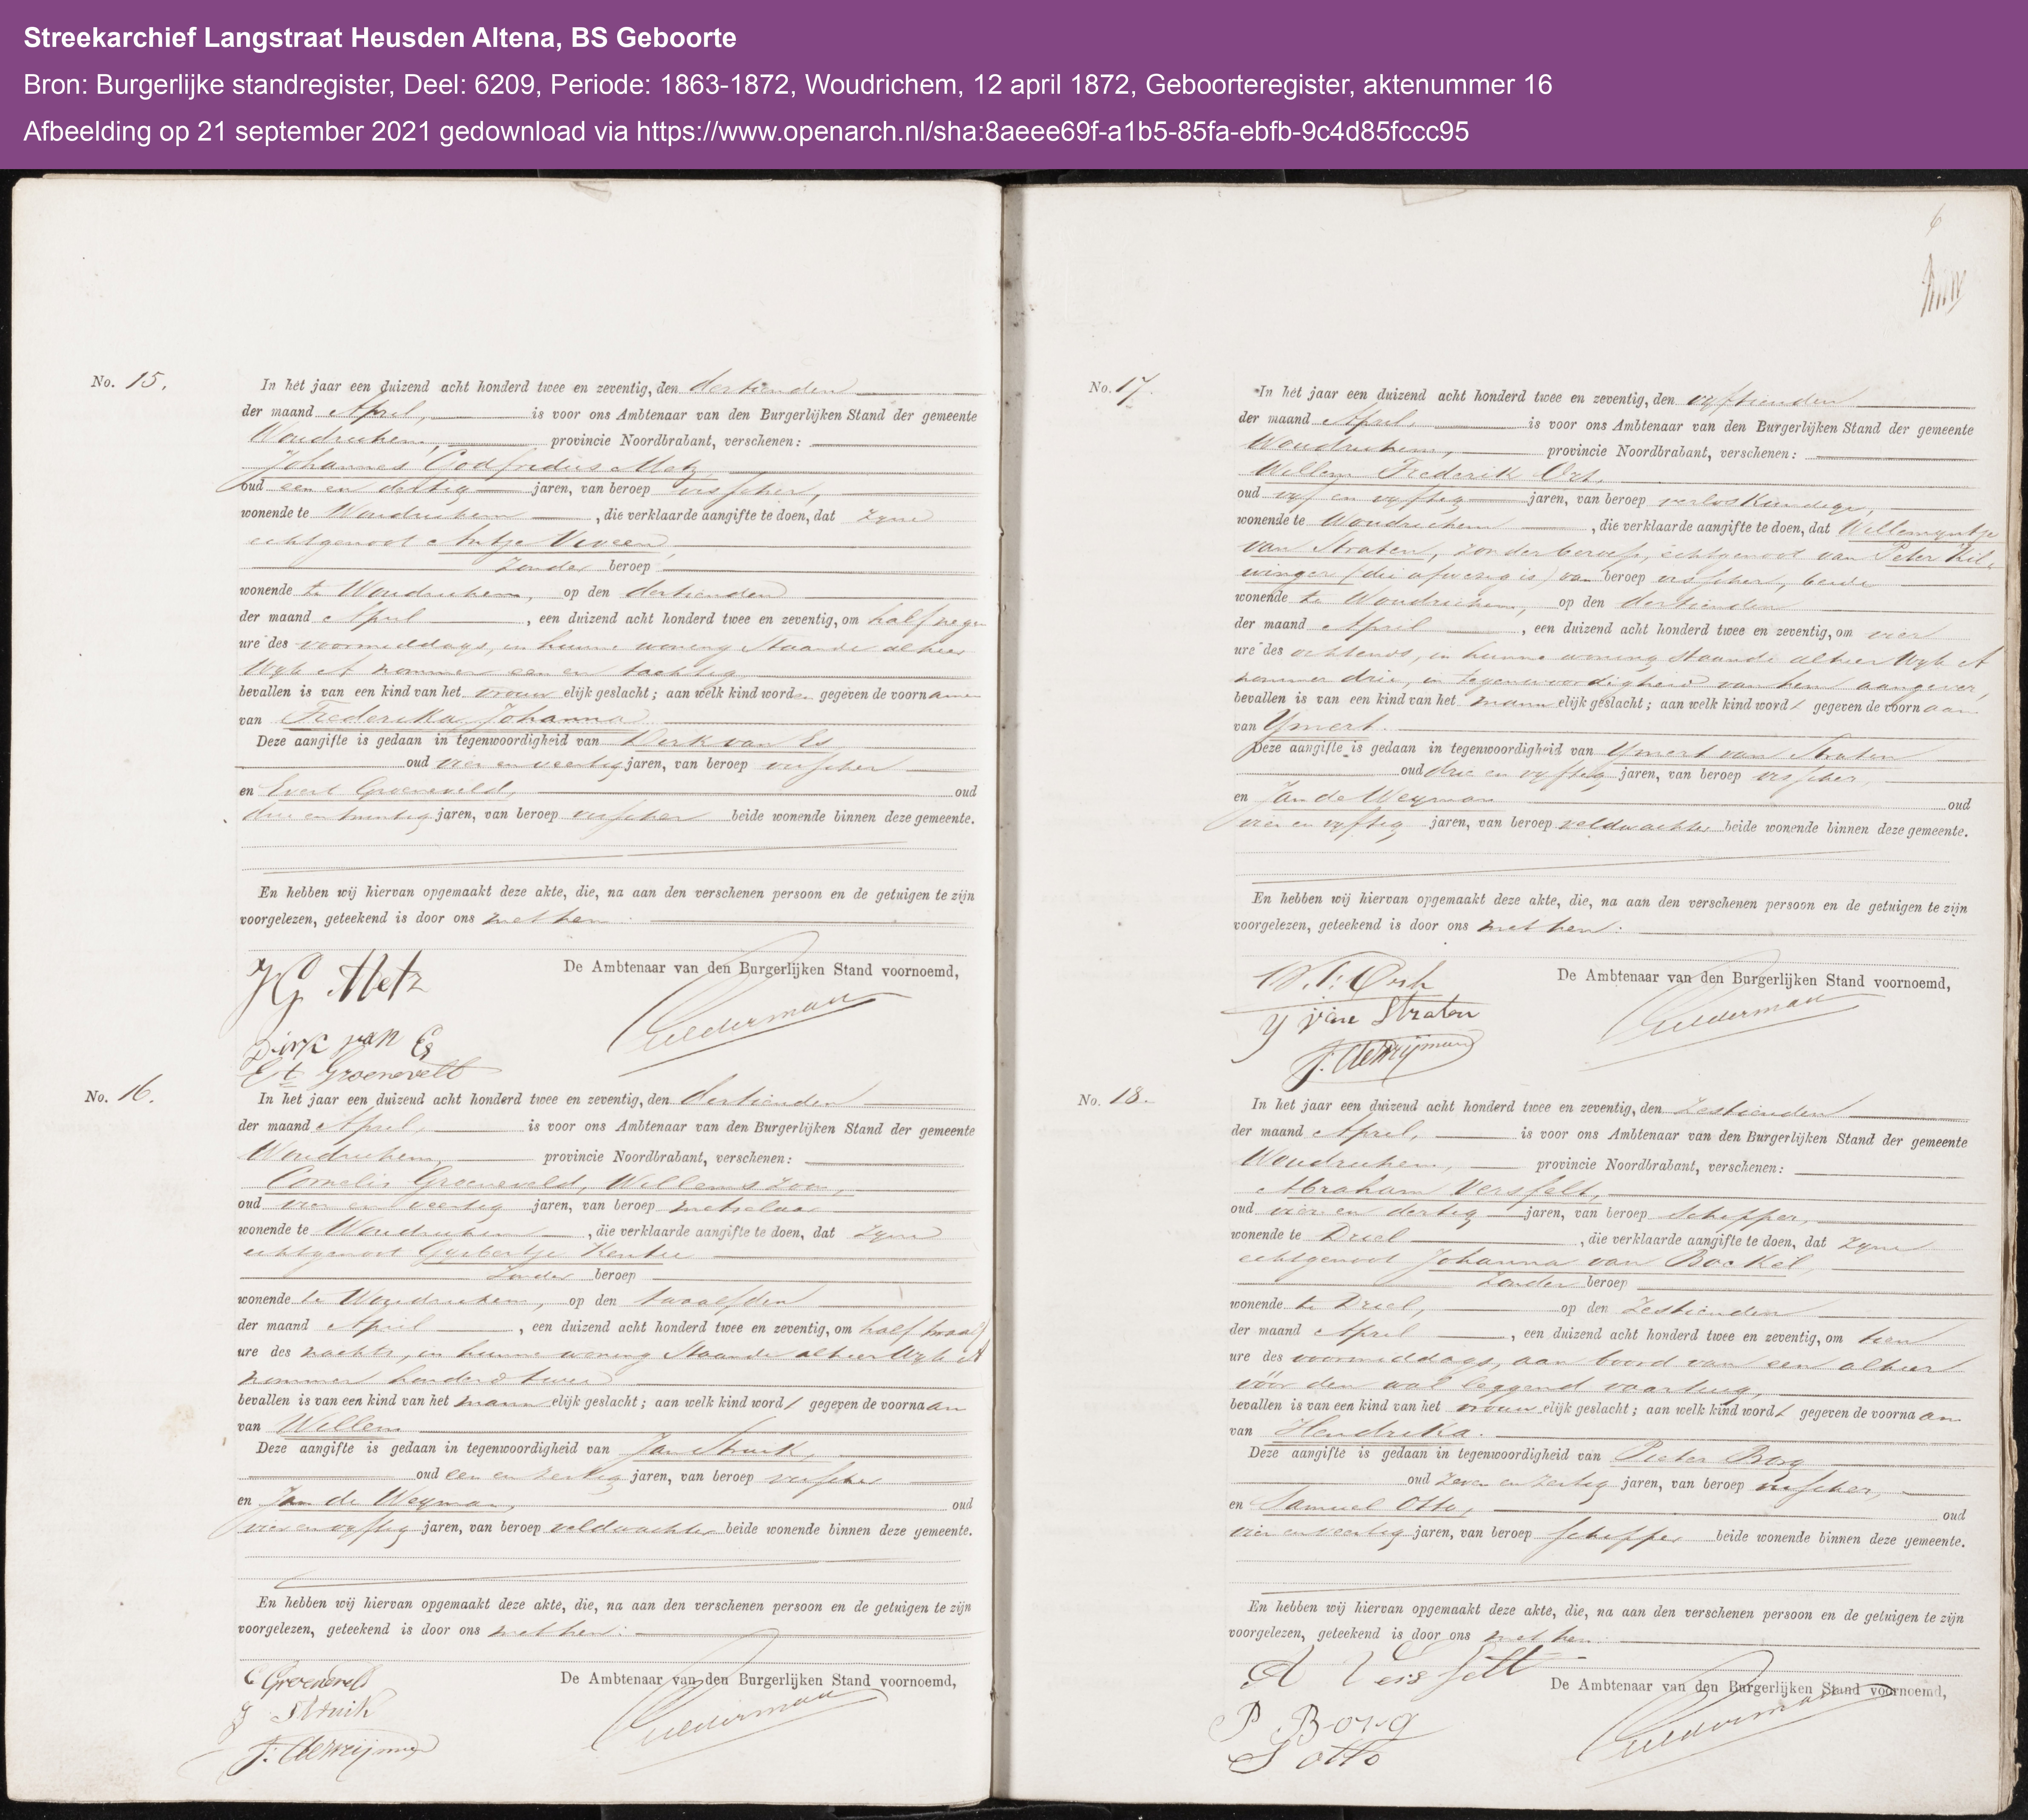 Streekarchief Langstraat Heusden Altena, BS Geboorte
Bron: Burgerlijke standregister, Deel: 6209, Periode: 1863-1872, Woudrichem, 12 april 1872, Geboorteregister, aktenummer 16
Afbeelding op 21 september 2021 gedownload via https://www.openarch.nl/sha:8aeee69f-a1b5-85fa-ebfb-9c4d85fccc95
No. 15.
In het jaar een duizend acht honderd twee en zeventig, den dertienden
der maand April, is voor ons Ambtenaar van den Burgerlijken Stand der gemeente
Woudrichem, provincie Noordbrabant, verschenen:
Johannes Godfredus Metz,
oud een en dertig jaren, van beroep visscher,
wonende te Woudrichem, die verklaarde aangifte te doen, dat zyne
echtgenoot Antje Viveen,
zonder beroep
wonende te Woudrichem, op den dertienden
der maand April, een duizend acht honderd twee en zeventig, om half negen
ure des voormiddags, in hunne woning staande alhier
Wyk A nommer een en tachtig
bevallen is van een kind van het vrouwelijk geslacht; aan welk kind worden gegeven de voornamen
van Frederika Johanna
Deze aangifte is gedaan in tegenwoordigheid van Dirk van Es
oud vier en veertig jaren, van beroep visscher
en Evert Groeneveld, oud
drie en twintig jaren, van beroep visscher beide wonende binnen deze gemeente.
En hebben wij hiervan opgemaakt deze akte, die, na aan den verschenen persoon en de getuigen te zijn
voorgelezen, geteekend is door ons met hen.
De Ambtenaar van den Burgerlijken Stand voornoemd,
JG Metz
Dirk van Es
Et Groenevelt
No. 16.
In het jaar een duizend acht honderd twee en zeventig, den dertienden
der maand April, is voor ons Ambtenaar van den Burgerlijken Stand der gemeente
Woudrichem, provincie Noordbrabant, verschenen:
Cornelis Groeneveld, Willemszoon,
oud vier en veertig jaren, van beroep metselaar
wonende te Woudrichem, die verklaarde aangifte te doen, dat zyne
echtgenoot Gysbertje
zonder beroep
wonende te Woudrichem, op den twaalfden
der maand April, een duizend acht honderd twee en zeventig, om half twaalf
ure des nachts, in hunne woning staande alhier Wyk A
nommer honderd twee
bevallen is van een kind van het mannelijk geslacht; aan welk kind wordt gegeven de voornaam
van Willem.
Deze aangifte is gedaan in tegenwoordigheid van Jan Struik,
oud een en jaren, van beroep visscher
en Jan de Weyman, oud
vier en vyftig jaren, van beroep veldwachter beide wonende binnen deze gemeente.
En hebben wij hiervan opgemaakt deze akte, die, na aan den verschenen persoon en de getuigen te zijn
voorgelezen, geteekend is door ons met hen.
De Ambtenaar van den Burgerlijken Stand voornoemd,
C Groeneveld
J Struik
J. de Weijman
6
No. 17.
In het jaar een duizend acht honderd twee en zeventig, den vyftienden
der maand April, is voor ons Ambtenaar van den Burgerlijken Stand der gemeente
Woudrichem, provincie Noordbrabant, verschenen:
Willem Frederik Ort,
oud vyf en vyftig jaren, van beroep verloskundige,
wonende te Woudrichem, die verklaarde aangifte te doen, dat Willemyntje
van Straten, zonder beroep, echtgenoot van Peter
(die afwezig is) van beroep visscher, beide
wonende te Woudrichem, op den dertienden
der maand April, een duizend acht honderd twee en zeventig, om vier
ure des ochtends, in hunne woning staande alhier Wyk A
nommer drie, in tegenwoordigheid van hem aangever,
bevallen is van een kind van het mannelijk geslacht; aan welk kind wordt gegeven de voornaam
van Ymert.
Deze aangifte is gedaan in tegenwoordigheid van Ymert van Straten
oud drie en vyftig jaren, van beroep visscher,
en Jan de Weyman oud
vier en vyftig jaren, van beroep veldwachter beide wonende binnen deze gemeente.
En hebben wij hiervan opgemaakt deze akte, die, na aan den verschenen persoon en de getuigen te zijn
voorgelezen, geteekend is door ons met hen.
De Ambtenaar van den Burgerlijken Stand voornoemd,
W. F. Ort
Y van Straten
J. de Weijman
No. 18.
In het jaar een duizend acht honderd twee en zeventig, den zestienden
der maand April, is voor ons Ambtenaar van den Burgerlijken Stand der gemeente
Woudrichem, provincie Noordbrabant, verschenen:
Abraham Versfelt,
oud vier en dertig jaren, van beroep schipper,
wonende te Driel, die verklaarde aangifte te doen, dat zyne
echtgenoot Johanna van Bockel,
zonder beroep
wonende te Driel, op den zestienden
der maand April, een duizend acht honderd twee en zeventig, om tien
ure des voormiddags, aan boord van een alhier
vóór den wal leggend vaartuig,
bevallen is van een kind van het vrouwelijk geslacht; aan welk kind wordt gegeven de voornaam
van Hendrika.
Deze aangifte is gedaan in tegenwoordigheid van Pieter Borg
oud zeven en jaren, van beroep visscher,
en Samuel Otto, oud
vier en veertig jaren, van beroep schipper beide wonende binnen deze gemeente.
En hebben wij hiervan opgemaakt deze akte, die, na aan den verschenen persoon en de getuigen te zijn
voorgelezen, geteekend is door ons met hen.
De Ambtenaar van den Burgerlijken Stand voornoemd,
A Versfelt
P Borg
S otto